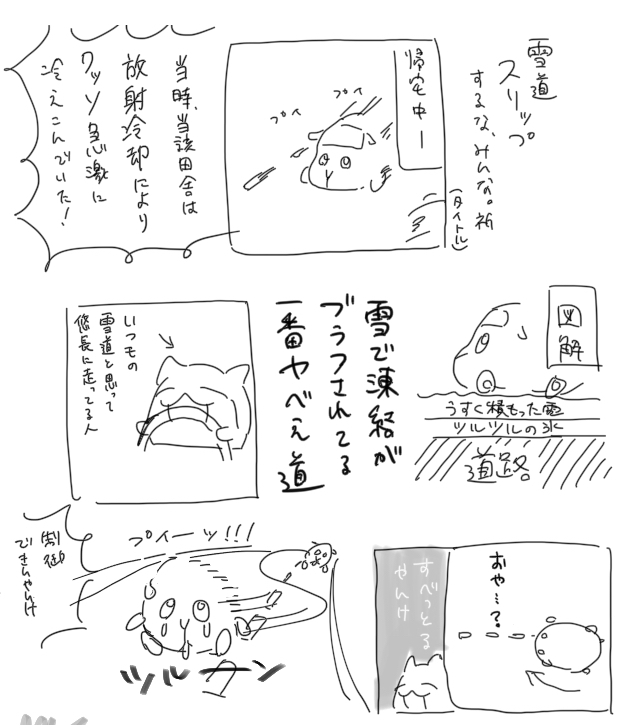 雪道
スリップ
するな、みんな。祈
(タイトル)
帰宅中ー
プイ
プイ
プイ
当時、当該田舎は
放射冷却により
クッソ急激に
冷えこんでいた!
図解
うすく積もった雪
ツルツルの氷
道路。
雪で凍結が
ブラフされてる
一番ヤベえ道
いつもの
雪道と思って
悠長に走ってる人
おや…?
すべっとる
やんけ
プイーッ!!!
制御
できんやんけ
ツルーン